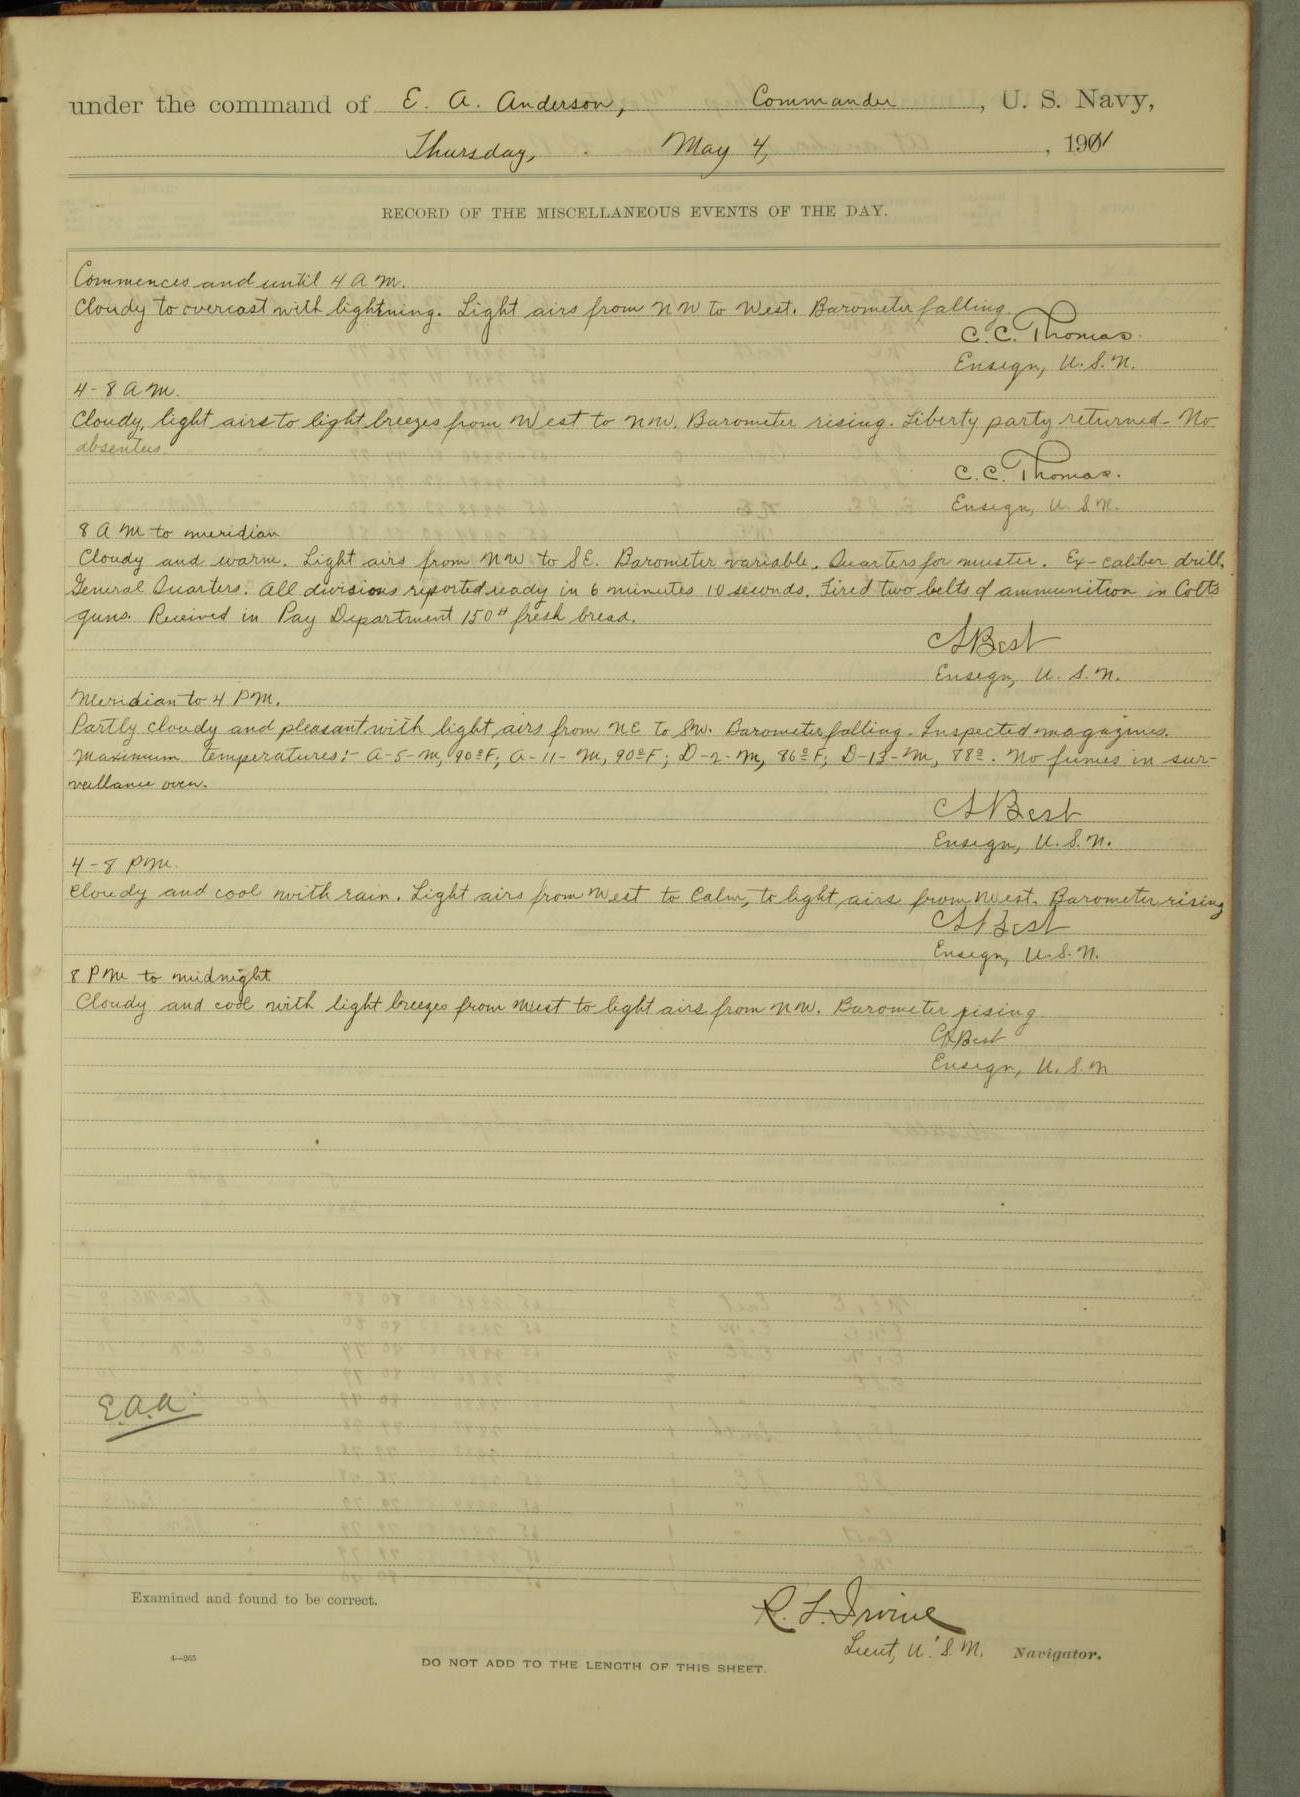 under the command of E. A. Anderson, Commander, U. S. Navy,
Thursday, May 4, 1911
RECORD OF THE MISCELLANEOUS EVENTS OF THE DAY.
Commences and until 4 A M.
Cloudy to overcast with lightning. Light airs from NW to West. Barometer falling.
C. C. Thomas.
Ensign, U. S. N.
4-8 A M.
Cloudy, light airs to light breezes from West to NW. Barometer rising. Liberty party returned- No
absentees.
C. C. Thomas.
Ensign, U. S. N.
8 A M to meridian
Cloudy and warm. Light airs from NW to SE. Barometer variable. Quarters for muster. Ex-caliber drill.
General Quarters. All divisions reported ready in 6 minutes 10 seconds. Fired two belts of ammunition in Colts
guns. Received in Pay Department 150# fresh bread.
Best
Ensign, U. S. N.
Meridian to 4 P M.
Partly cloudy and pleasant with light airs from NE to SW. Barometer falling. Inspected magazines.
Maximum temperatures:- A-5-M, 90°F; A-11-M, 90°F; D-2-M, 86°F; D-13-M, 88°. No fumes in sur-
veillance oven.
Best
Ensign, U. S. N.
4-8 P M.
Cloudy and cool with rain. Light airs from West to Calm, to light airs from West. Barometer rising
Best
Ensign, U. S. N.
8 P M to midnight.
Cloudy and cool with light breezes from West to light airs from NW. Barometer rising
Best
Ensign, U. S. N
E.A.A.
Examined and found to be correct.
R. L. Irvine
Lieut, U. S. N. Navigator.
4—265
DO NOT ADD TO THE LENGTH OF THIS SHEET.